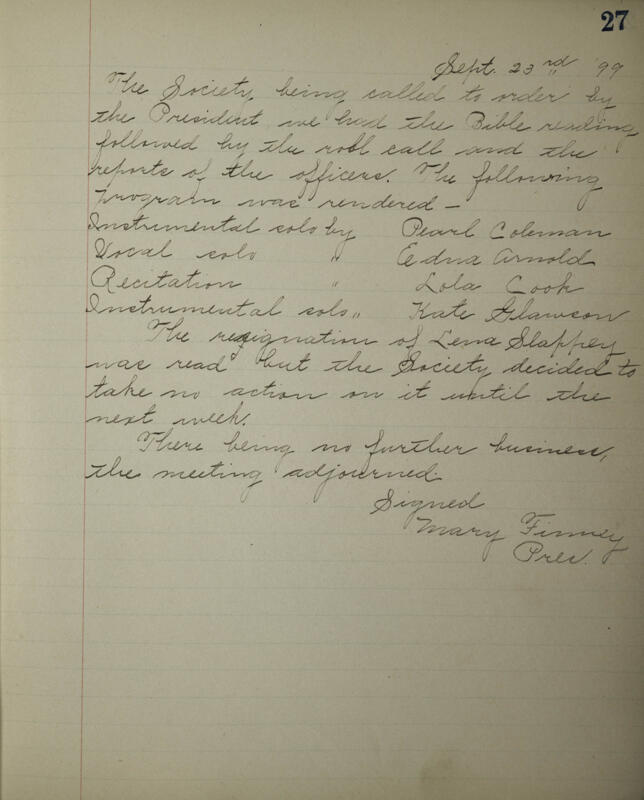 27
Sept. 23rd '99
The Society being called to order by
the President we had the Bible reading
followed by the roll call and the
reports of the officers. The following
program was rendered —
Instrumental solo by Pearl Coleman
Vocal solo " Edna Arnold
Recitation " Lola Cook
Instrumental solo " Kate Glawson
The resignation of Lena Slappey
was read but the Society decided to
take no action on it until the
next week.
There being no further business,
the meeting adjourned.
Signed
Mary Finney
Pres.